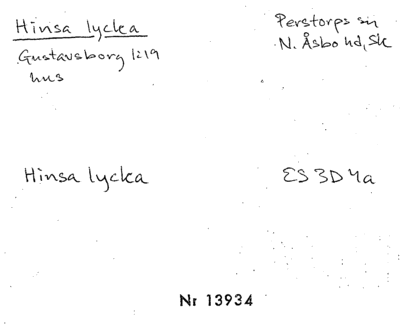 Hinsa lycka
Perstorps sn
Gustavsborg 1:19
N. Åsbo hd, Sk
hus
Hinsa lycka
ES 3D 4a
Nr 13934